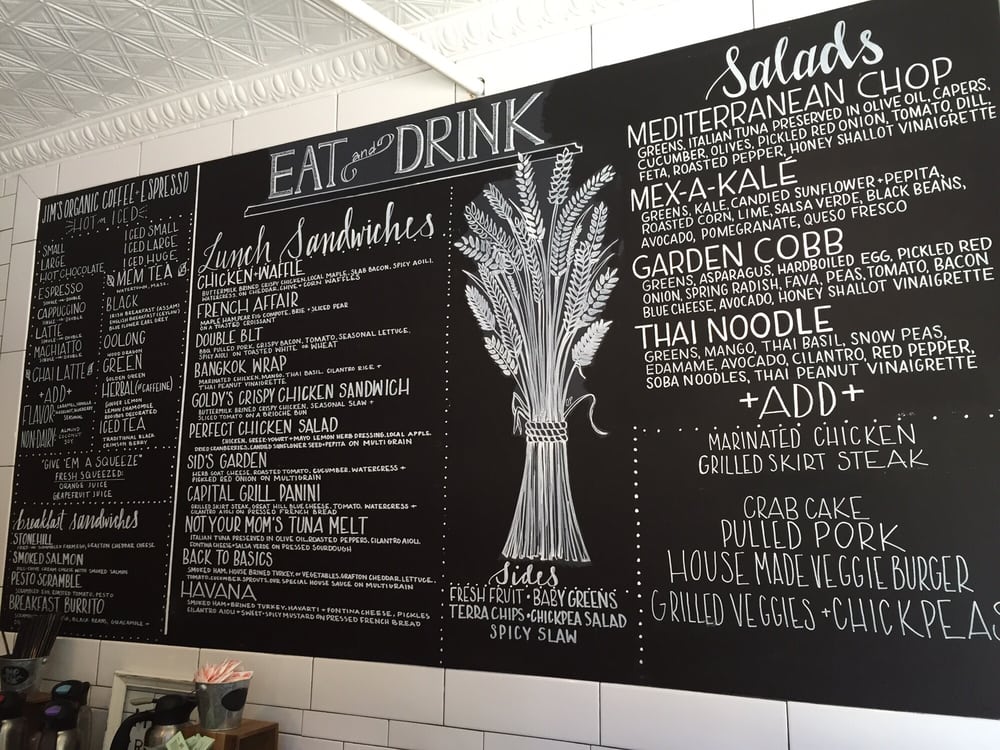 EAT and DRINK
JIM'S ORGANIC COFFEE + ESPRESSO
HOT or ICED
SMALL
LARGE
HOT CHOCOLATE
ESPRESSO
SINGLE or DOUBLE
CAPPUCCINO
SINGLE or DOUBLE
LATTE
SINGLE or DOUBLE
MACHIATTO
SINGLE or DOUBLE
CHAI LATTE
+ADD+
FLAVOR
NON-DAIRY ALMOND
COCONUT
SOY
ICED SMALL
ICED LARGE
ICED HUGE
MEM TEA
WATERTOWN, MASS.
BLACK
IRISH BREAKFAST (ASSAM)
ENGLISH BREAKFAST (CEYLON)
BLUE FLOWER EARL GREY
OOLONG
GREEN
GOLDEN GREEN
HERBAL (NO CAFFEINE)
GINGER LEMON
LEMON CHAMOMILE
ROOIBOS DECORATED
ICED TEA
TRADITIONAL BLACK
CRIMSON BERRY
"GIVE 'EM A SQUEEZE"
FRESH SQUEEZED:
ORANGE JUICE
GRAPEFRUIT JUICE
breakfast sandwiches
STONEHILL
SMOKED SALMON
PESTO SCRAMBLE
SCRAMBLED EGG, ROASTED TOMATO, PESTO
BREAKFAST BURRITO
Lunch Sandwiches
CHICKEN + WAFFLE
BUTTERMILK BRINED CRISPY CHICKEN, LOCAL MAPLE, SLAB BACON, SPICY AIOLI,
WATERCRESS, ON CHEDDAR, CHIVE + CORN WAFFLES
FRENCH AFFAIR
MAPLE HAM, PEAR FIG COMPOTE, BRIE + SLICED PEAR
ON A TOASTED CROISSANT
DOUBLE BLT
BBQ PULLED PORK, CRISPY BACON, TOMATO, SEASONAL LETTUCE,
SPICY AIOLI ON TOASTED WHITE or WHEAT
BANGKOK WRAP
MARINATED CHICKEN, MANGO, THAI BASIL, CILANTRO RICE +
THAI PEANUT VINAIGRETTE
GOLDY'S CRISPY CHICKEN SANDWICH
BUTTERMILK BRINED CRISPY CHICKEN, SEASONAL SLAW +
SLICED TOMATO ON A BRIOCHE BUN
PERFECT CHICKEN SALAD
CHICKEN, GREEK-YOGURT + MAYO LEMON HERB DRESSING, LOCAL APPLE,
DRIED CRANBERRIES, CANDIED SUNFLOWER SEED + PEPITA ON MULTIGRAIN
SID'S GARDEN
HERB GOAT CHEESE, ROASTED TOMATO, CUCUMBER, WATERCRESS +
PICKLED RED ONION ON MULTIGRAIN
CAPITAL GRILL PANINI
GRILLED SKIRT STEAK, GREAT HILL BLUE CHEESE, TOMATO, WATERCRESS +
CILANTRO AIOLI ON PRESSED FRENCH BREAD
NOT YOUR MOM'S TUNA MELT
ITALIAN TUNA PRESERVED IN OLIVE OIL, ROASTED PEPPERS, CILANTRO AIOLI,
FONTINA CHEESE + SALSA VERDE ON PRESSED SOURDOUGH
BACK TO BASICS
SMOKED HAM, HOUSE BRINED TURKEY, or VEGETABLES, GRAFTON CHEDDAR, LETTUCE,
TOMATO, CUCUMBER, SPROUTS, OUR SPECIAL HOUSE SAUCE ON MULTIGRAIN
HAVANA
SMOKED HAM + BRINED TURKEY, HAVARTI + FONTINA CHEESE, PICKLES
CILANTRO AIOLI + SWEET + SPICY MUSTARD ON PRESSED FRENCH BREAD
Sides
FRESH FRUIT • BABY GREENS
TERRA CHIPS • CHICKPEA SALAD
SPICY SLAW
Salads
MEDITERRANEAN CHOP
GREENS, ITALIAN TUNA PRESERVED IN OLIVE OIL, CAPERS,
CUCUMBER, OLIVES, PICKLED RED ONION, TOMATO, DILL,
FETA, ROASTED PEPPER, HONEY SHALLOT VINAIGRETTE
MEX-A-KALÉ
GREENS, KALE, CANDIED SUNFLOWER + PEPITA,
ROASTED CORN, LIME, SALSA VERDE, BLACK BEANS,
AVOCADO, POMEGRANATE, QUESO FRESCO
GARDEN COBB
GREENS, ASPARAGUS, HARDBOILED EGG, PICKLED RED
ONION, SPRING RADISH, FAVA, PEAS, TOMATO, BACON
BLUE CHEESE, AVOCADO, HONEY SHALLOT VINAIGRETTE
THAI NOODLE
GREENS, MANGO, THAI BASIL, SNOW PEAS,
EDAMAME, AVOCADO, CILANTRO, RED PEPPER,
SOBA NOODLES, THAI PEANUT VINAIGRETTE
+ADD+
MARINATED CHICKEN
GRILLED SKIRT STEAK
CRAB CAKE
PULLED PORK
HOUSE MADE VEGGIE BURGER
GRILLED VEGGIES + CHICKPEAS